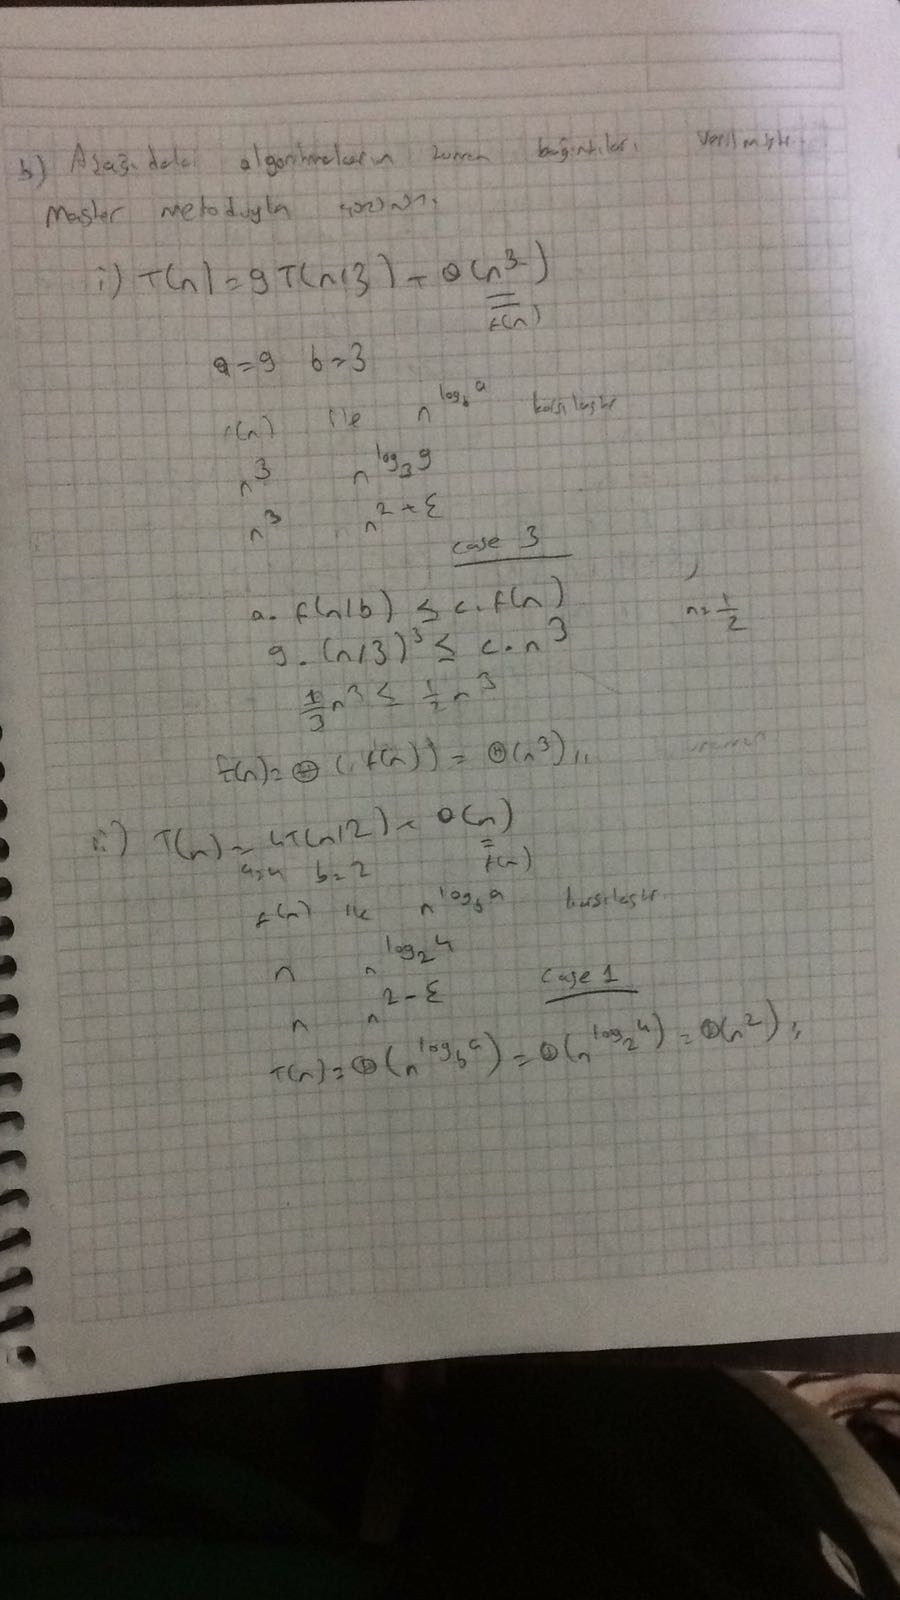 b) Aşağıdaki algoritmaların zaman bağıntıları verilmiştir.
Master metoduyla çözünüz.
i) T(n) = 9T(n/3) + Θ(n^3)
f(n)
a=9 b=3
f(n) ile n^log_b a karşılaştır
n^3 n^log_3 9
n^3 n^2+ε
case 3
a. f(n/b) ≤ c. f(n)
n= 1/2
9. (n/3)^3 ≤ c. n^3
1/3 n^3 ≤ 1/2 n^3
f(n)= Θ(f(n)) = Θ(n^3)
ii) T(n) = 4T(n/2) + Θ(n)
a=4 b=2 f(n)
f(n) ile n^log_b a karşılaştır.
n n^log_2 4
n n^2-ε case 1
T(n)= Θ(n^log_b a) = Θ(n^log_2 4) = Θ(n^2)